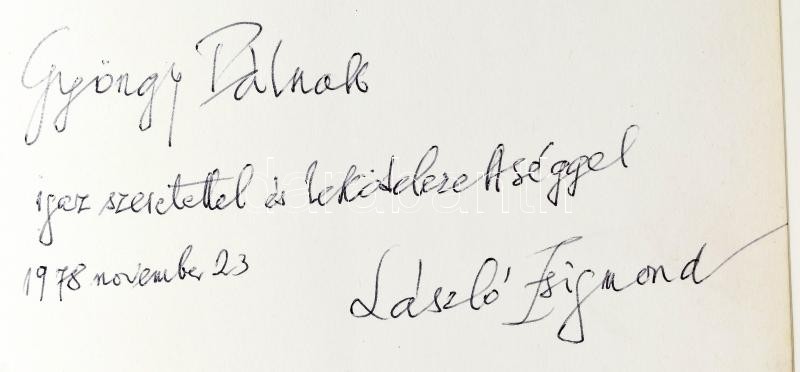 György Pálnak
igaz szeretettel és lekötelezettséggel
1978 november 23
László Zsigmond
darabanth